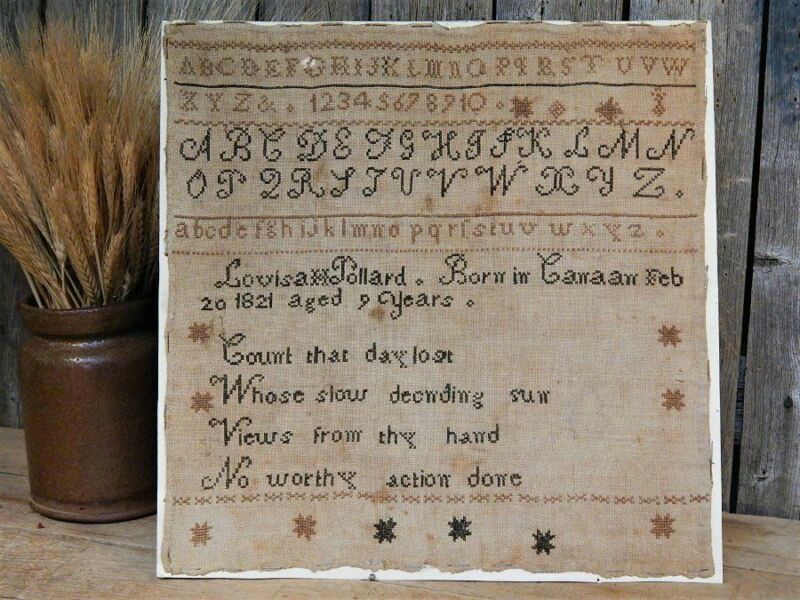 ABCDEFGHIJKLMNOPQRSTUVW
XYZ&. 12345678910.
ABCDEFGHIJKLMN
OPQRSTUVWXYZ.
abcdefghijklmnopqrſstuvwxyz.
Lovisa Pollard. Born in Canaan Feb
20 1821 aged 9 Years.
Count that day lost
Whose slow decnding sun
Views from thy hand
No worthy action done